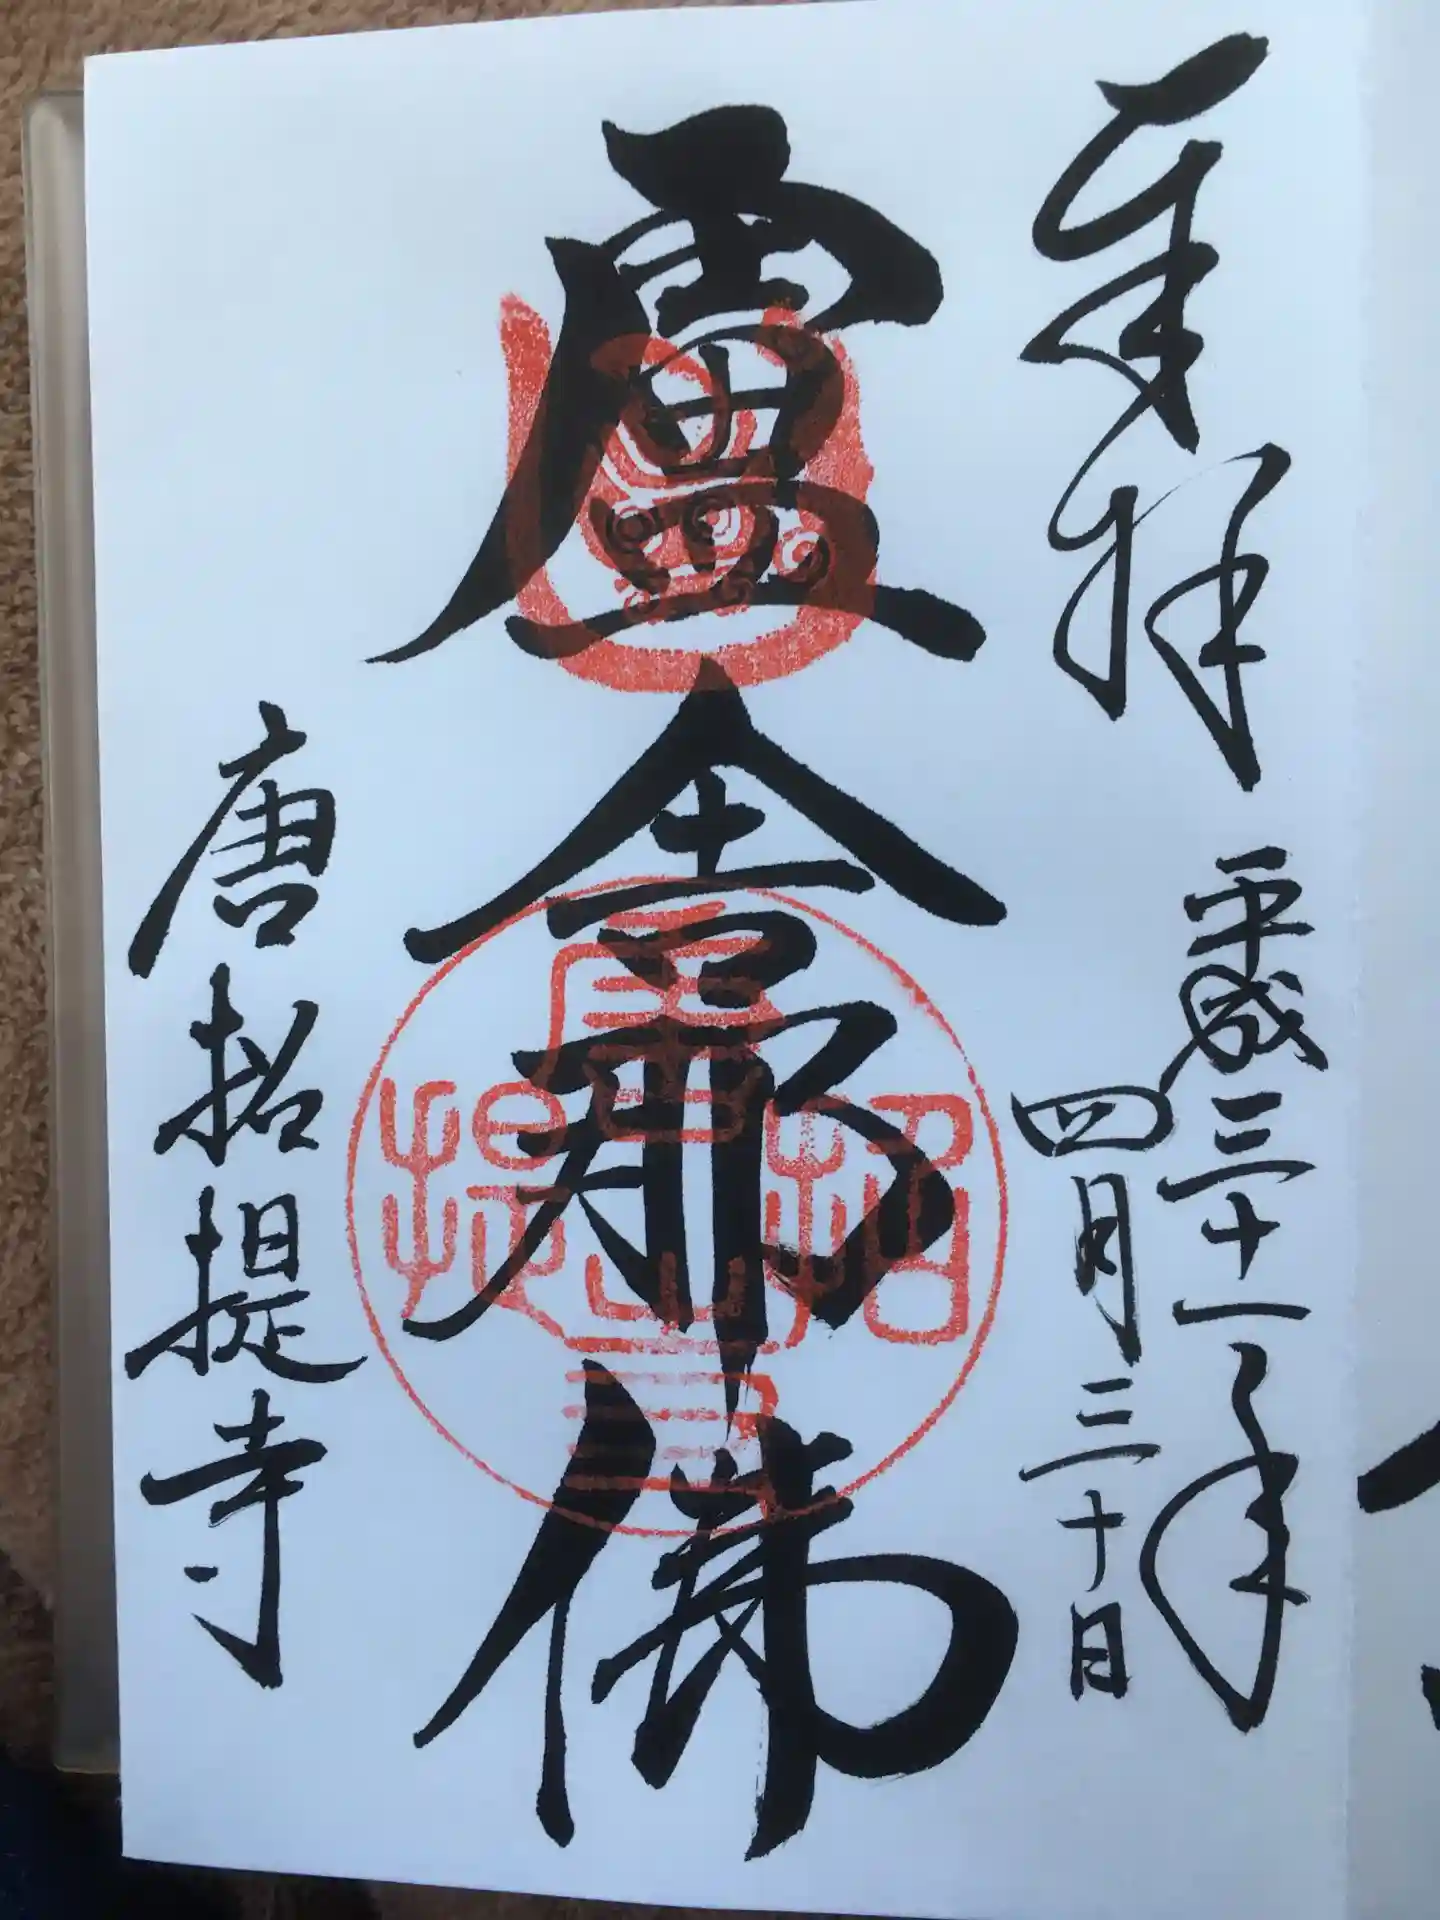 奉拝
平成三十一年
四月三十日
盧舎那佛
唐招提寺
唐招提寺